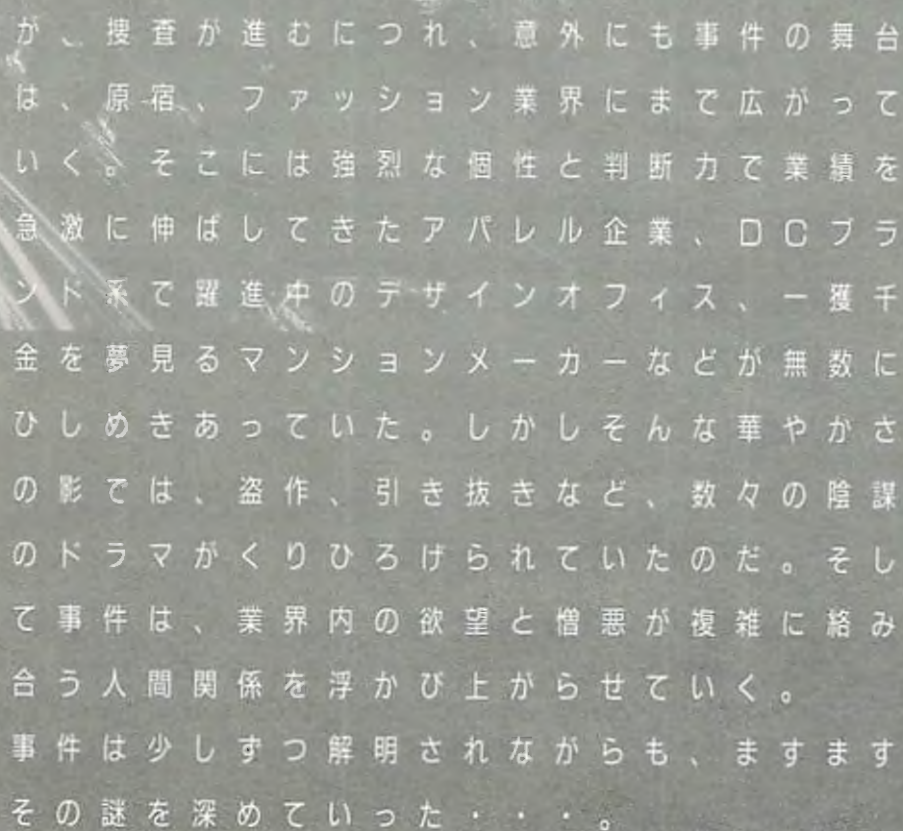 が、捜査が進むにつれ、意外にも事件の舞台
は、原宿、ファッション業界にまで広がって
いく。そこには強烈な個性と判断力で業績を
急激に伸ばしてきたアパレル企業、DCブラ
ンド系で躍進中のデザインオフィス、一獲千
金を夢見るマンションメーカーなどが無数に
ひしめきあっていた。しかしそんな華やかさ
の影では、盗作、引き抜きなど、数々の陰謀
のドラマがくりひろげられていたのだ。そし
て事件は、業界内の欲望と憎悪が複雑に絡み
合う人間関係を浮かび上がらせていく。
事件は少しずつ解明されながらも、ますます
その謎を深めていった・・・。